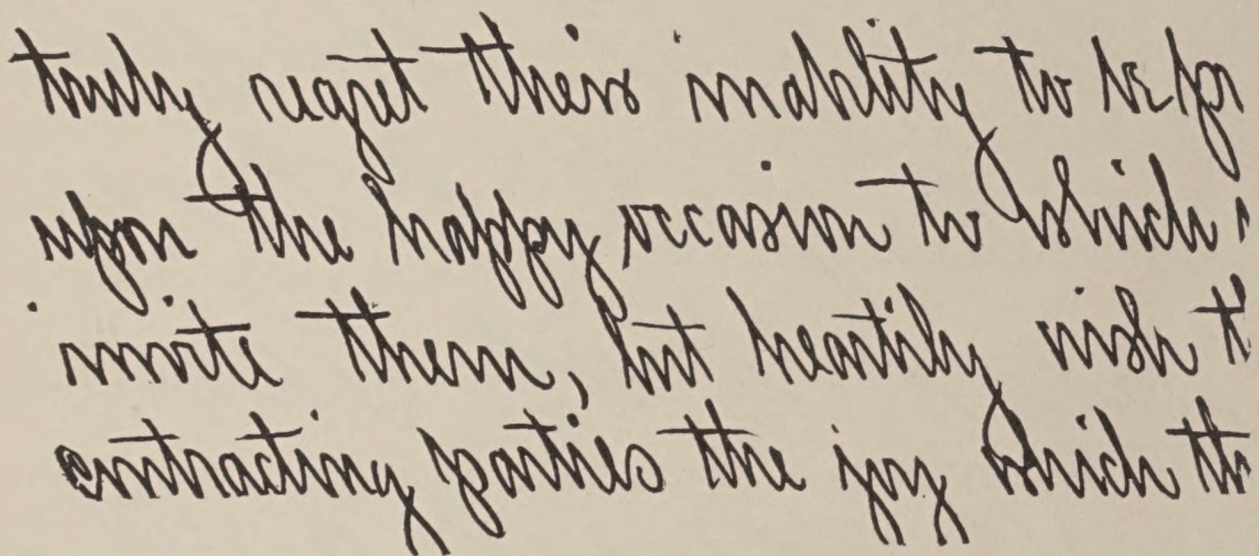 truly regret their inability to be pr
upon the happy occasion to which
invite them, but heartily wish t
contracting parties the joy which th